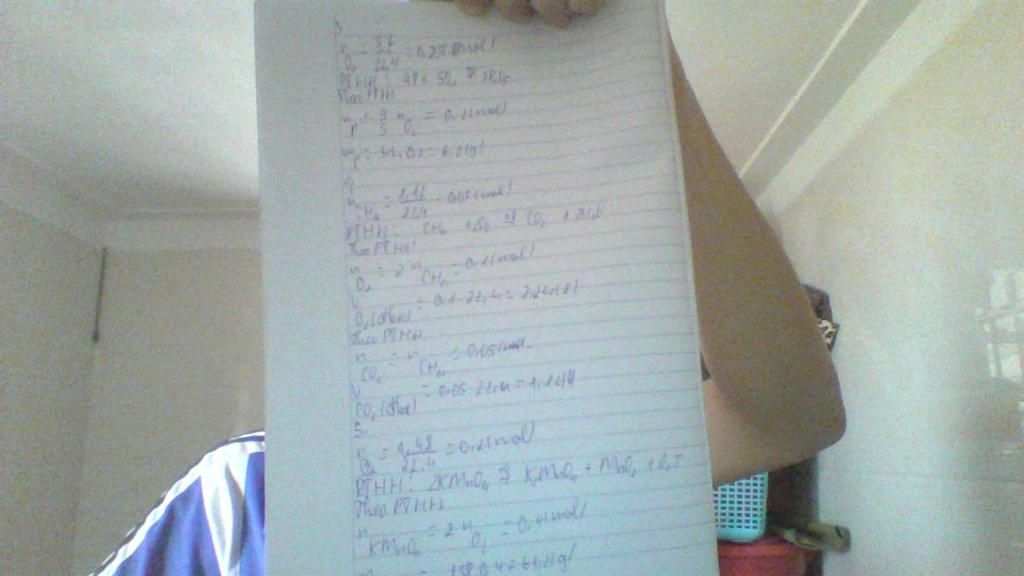 3
n O₂ = 5,6/22,4 = 0,25(mol)
PTHH: 4P + 5O₂ → 2P₂O₅
Theo PTHH
n P = 4/5 n O₂ = 0,2(mol)
m P = 31.0,2 = 6,2(g)
4
n CH₄ = 1,12/22,4 = 0,05(mol)
PTHH: CH₄ + 2O₂ → CO₂ + 2H₂O
Theo PTHH
n O₂ = 2 n CH₄ = 0,1(mol)
V O₂(đktc) = 0,1.22,4 = 2,24(l)
Theo PTHH
n CO₂ = n CH₄ = 0,05(mol)
V CO₂(đktc) = 0,05.22,4 = 1,12(l)
5.
n O₂ = 4,48/22,4 = 0,2(mol)
PTHH: 2KMnO₄ → K₂MnO₄ + MnO₂ + O₂↑
Theo PTHH
n KMnO₄ = 2 n O₂ = 0,4(mol)
= 158.0,4 = 63,2(g)